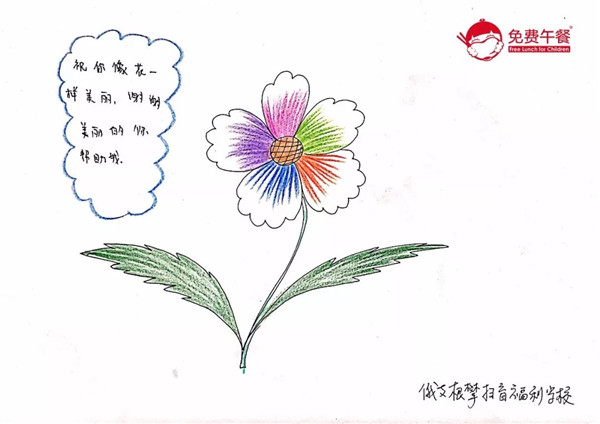 免费午餐
Free Lunch for Children
祝你像花一
样美丽，谢谢
美丽的你
帮助我.
俄支根擎扫盲福利学校